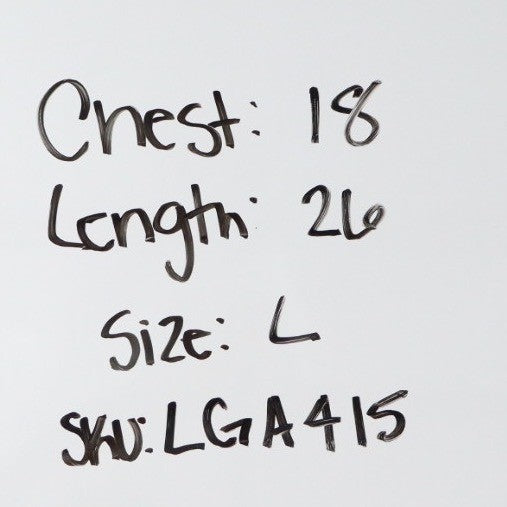 Chest: 18
Length: 26
Size: L
SKU: LGA415